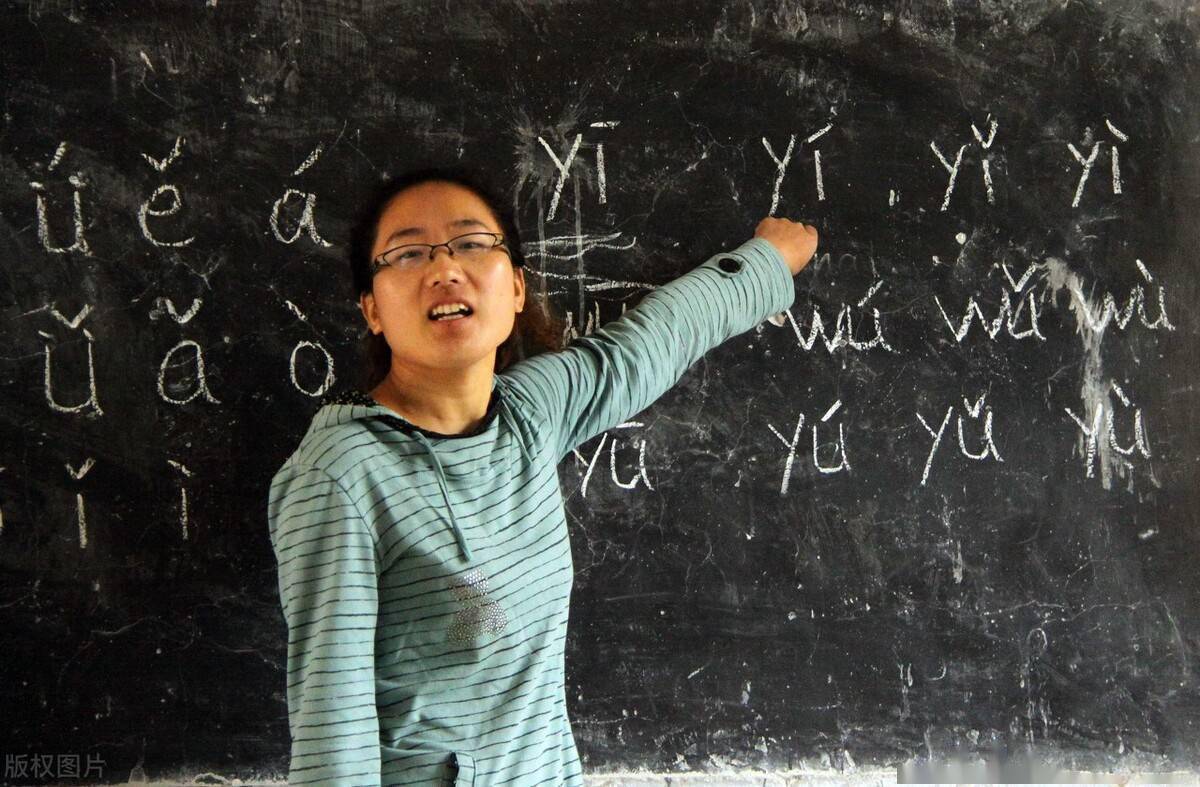 ǘ ě á yī yí yǐ yì
ǚ ǎ ò wú wǔ wù
ǐ ì yū yú yǔ yù
版权图片